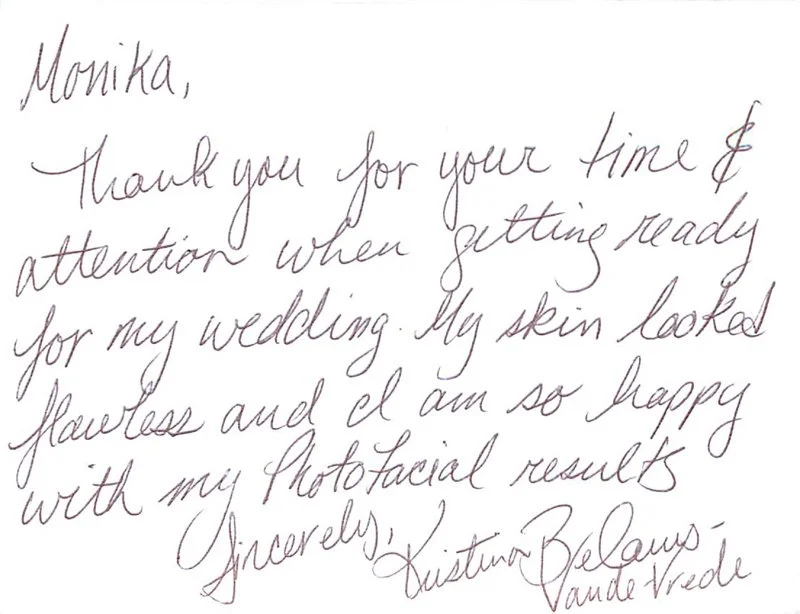 Monika,
Thank you for your time &
attention when getting ready
for my wedding. My skin looked
flawless and I am so happy
with my PhotoFacial results
Sincerely,
Kristina